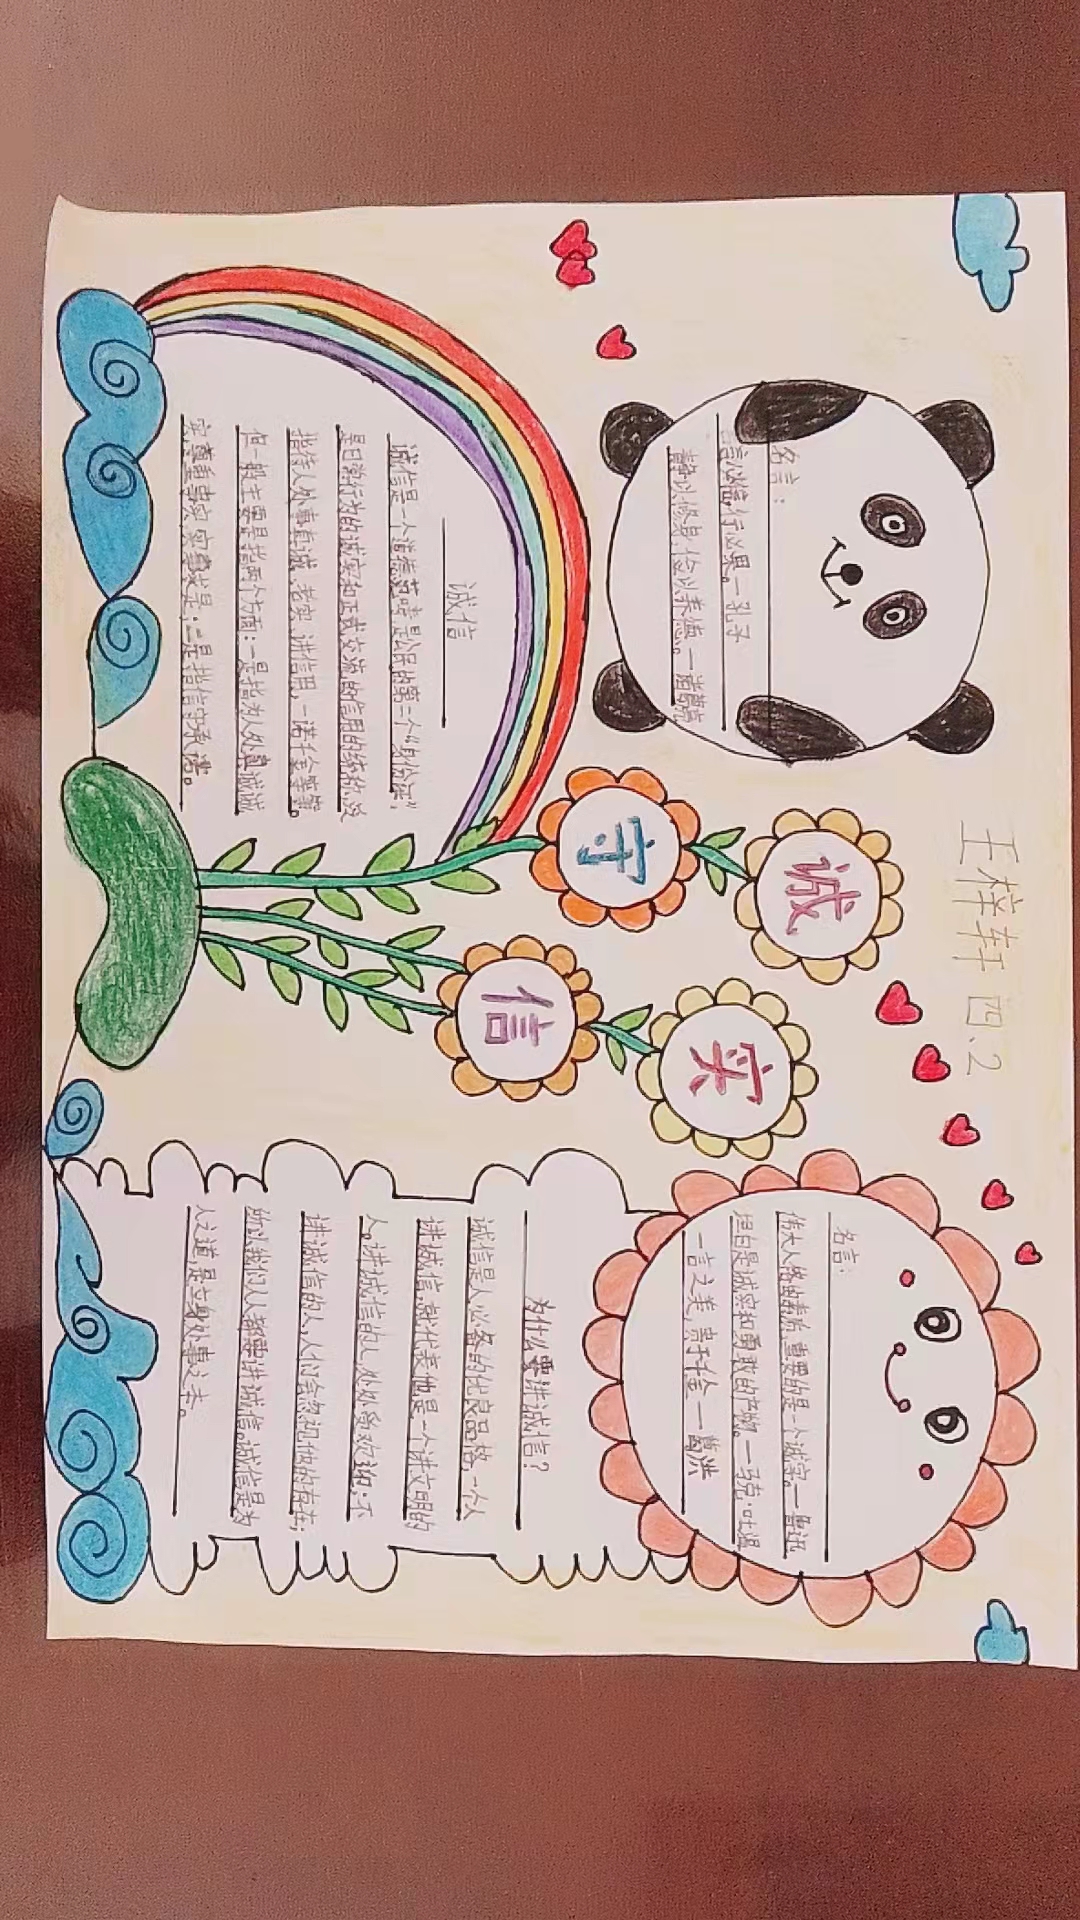 王梓轩 四.2
诚实
守信
名言:
言必信,行必果。一孔子
静以修身,俭以养德。一诸葛亮
诚信
诚信是一个道德范畴,是公民的第二个“身份证”,
是日常行为的诚实和正式交流的信用的统称。泛
指待人处事真诚、老实、讲信用,一诺千金等等。
但一般主要是指两个方面:一是指为人处事真诚诚
实,尊重事实,实事求是;二是指信守承诺。
名言:
伟大人格的素质,重要的是一个诚字。一鲁迅
坦白是诚实和勇敢的产物。一马克·吐温
一言之美,贵于千金 一葛洪
为什么要讲诚信?
诚信是人必备的优良品格,一个人
讲诚信,就代表他是一个讲文明的
人。讲诚信的人,处处受欢迎;不
讲诚信的人,人们会忽视他的存在;
所以我们人人都要讲诚信。诚信是为
人之道,是立身处事之本。